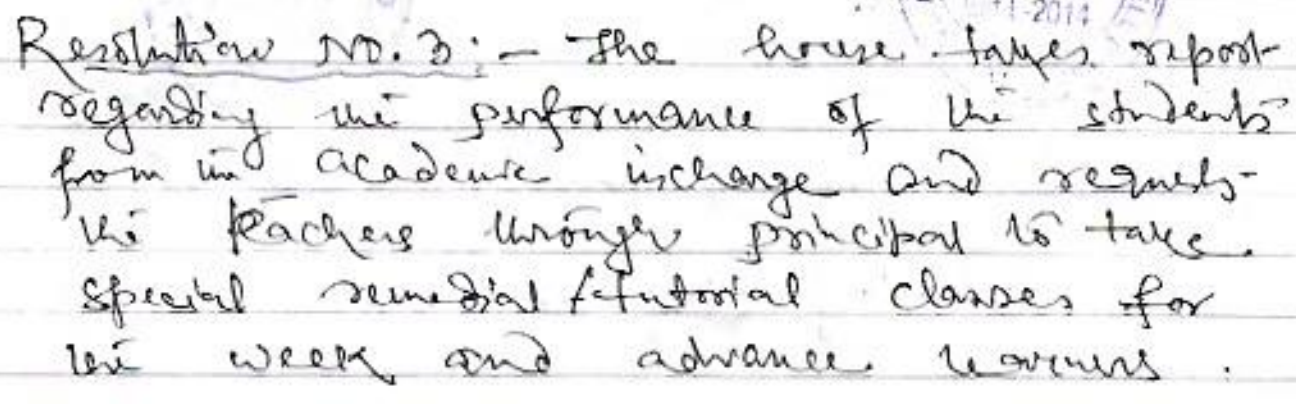 1-2014
Resolution No. 3:- The house takes report
regarding the performance of the students
from the academic incharge and requests
the teachers through principal to take
special remedial/tutorial classes for
the week and advance learners.